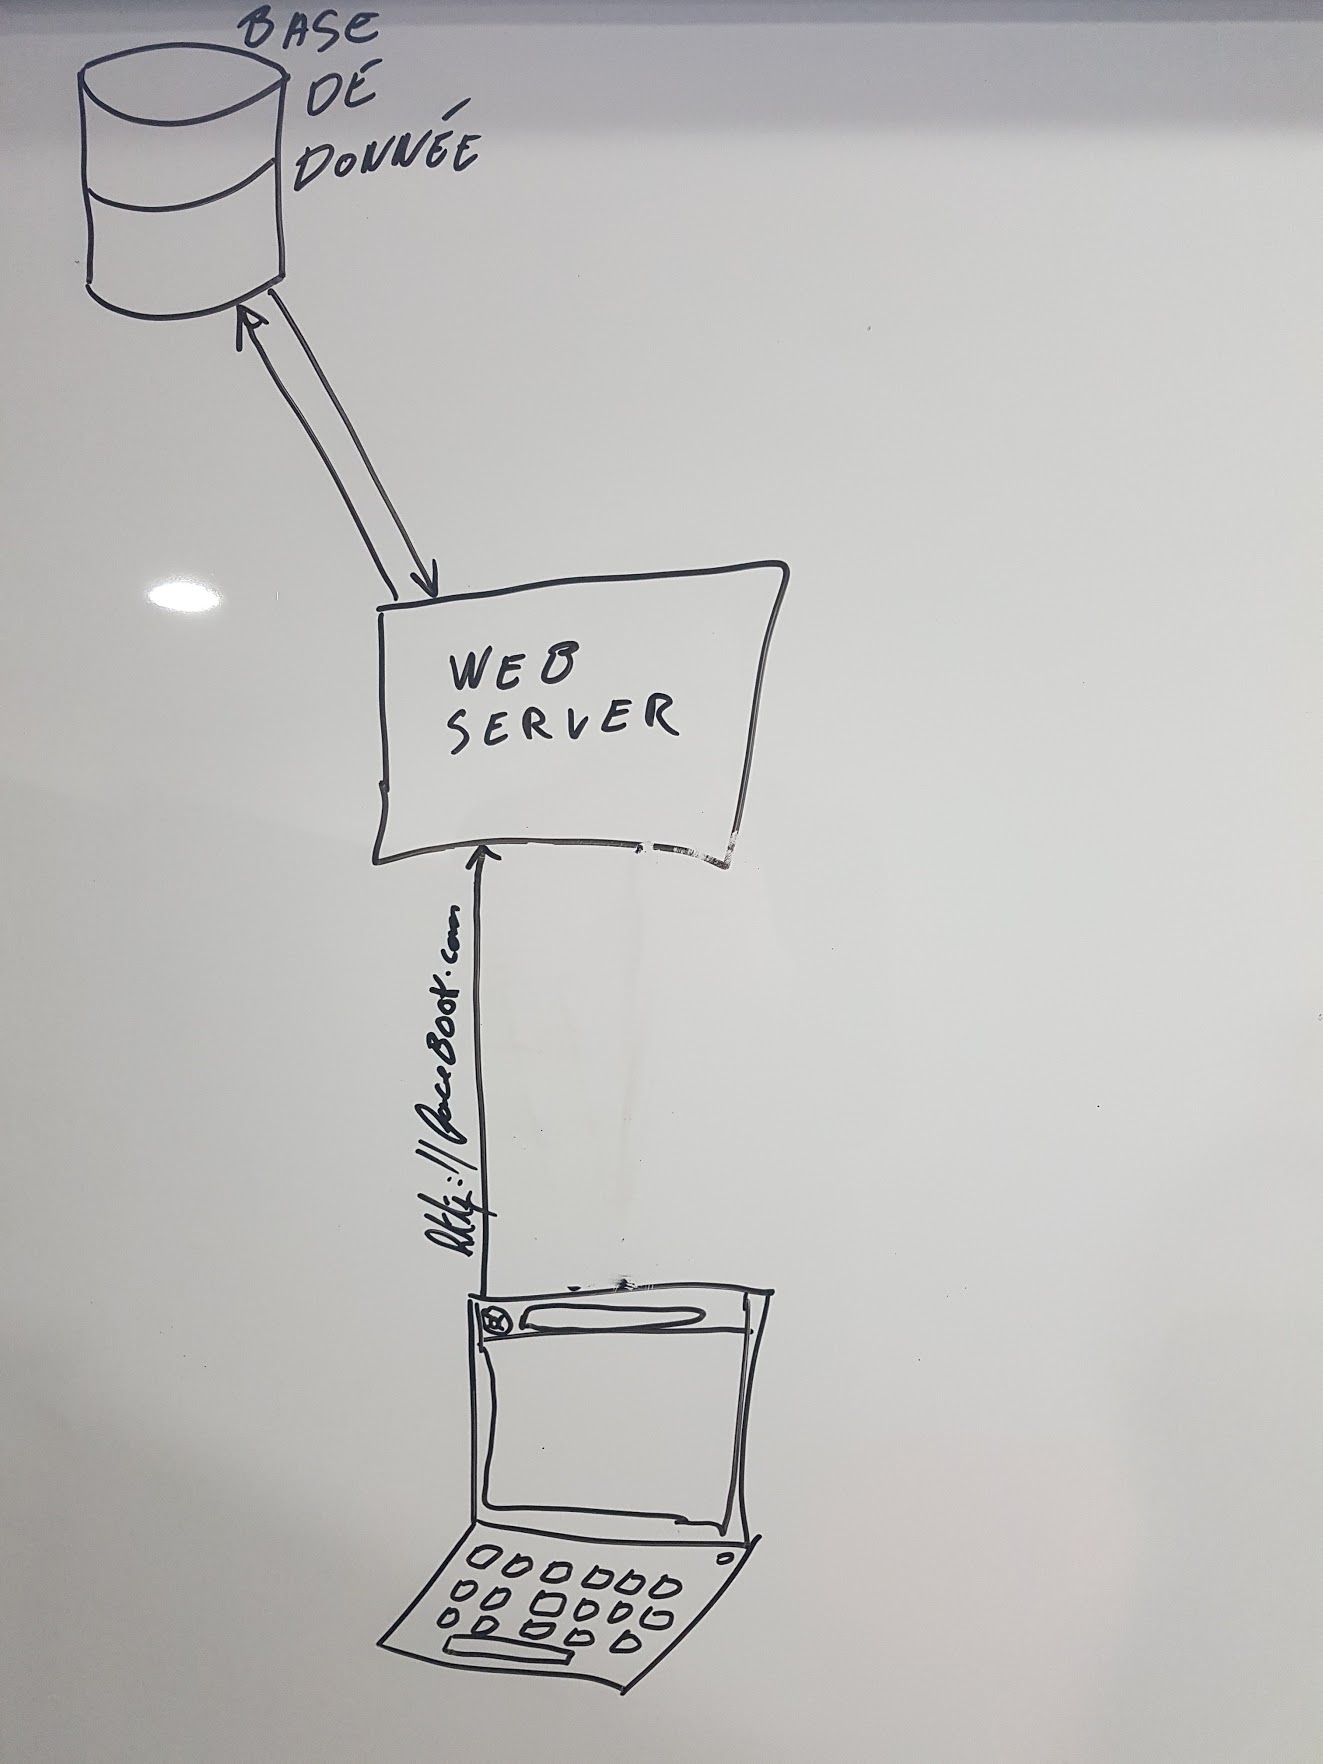 BASE
DE
DONNÉE
WEB
SERVER
http://faceBook.com